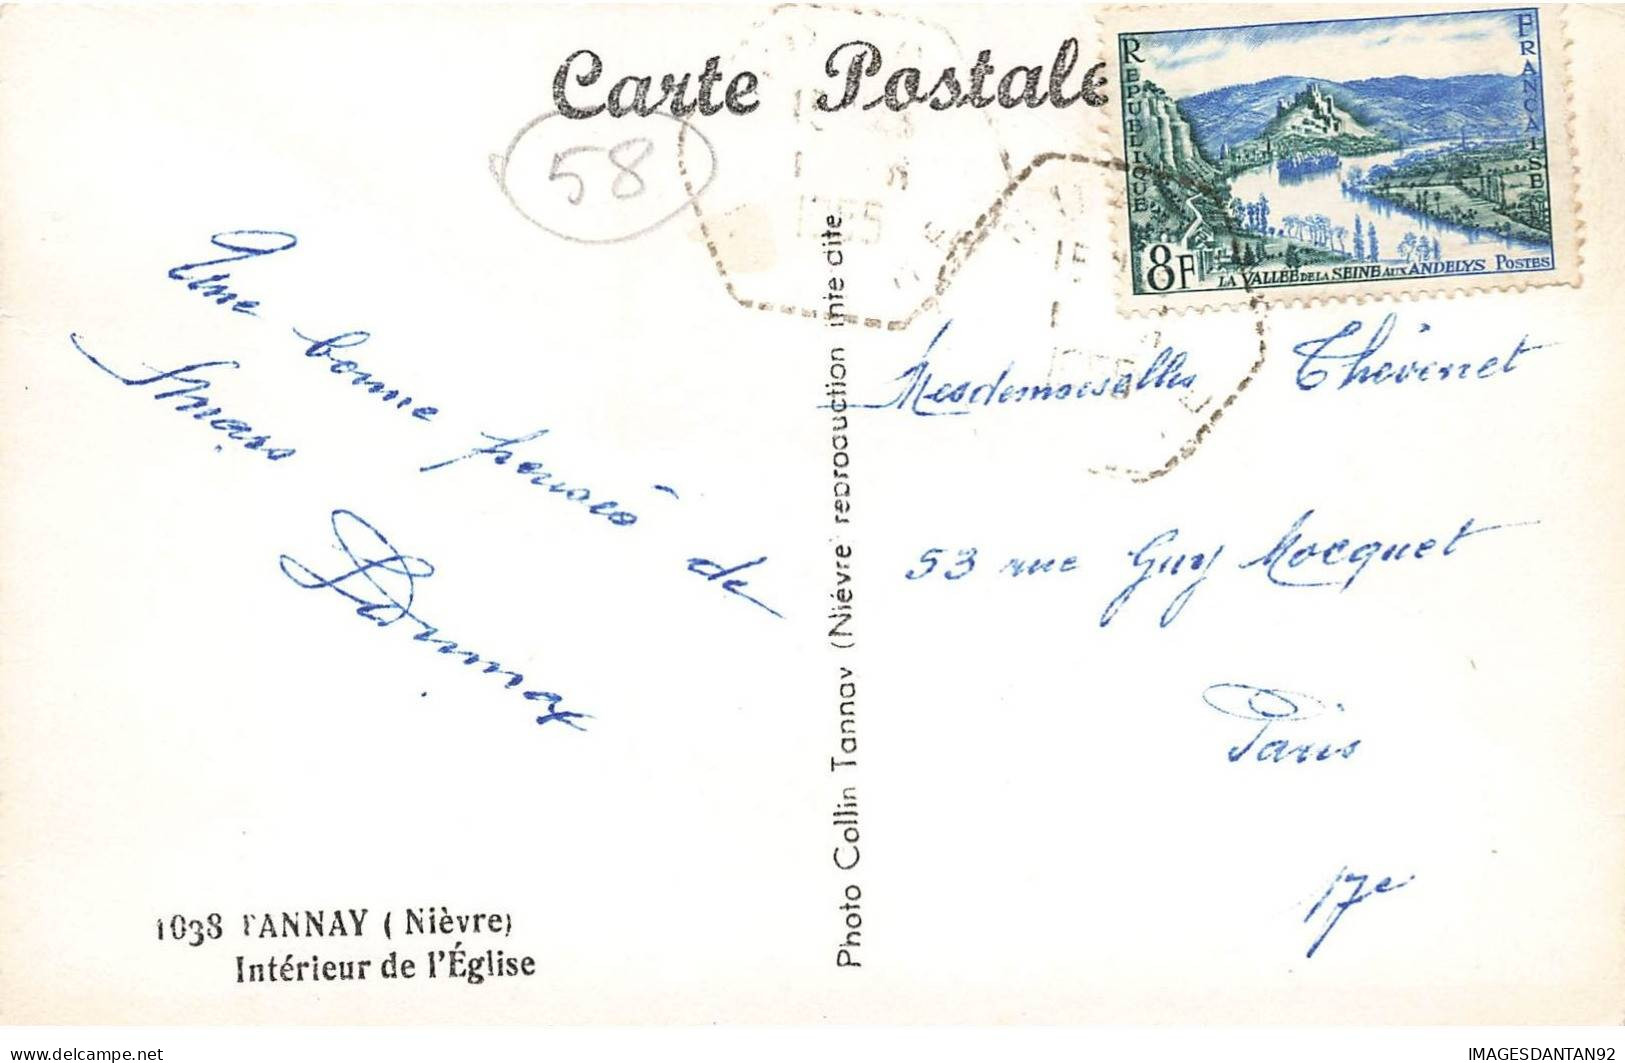 Carte Postale
58
RÉPUBLIQUE
FRANÇAISE
8F
LA VALLÉE DE LA SEINE AUX ANDELYS POSTES
1955
Une bonne pensée de
Mesdemoiselles Thévenet
53 rue Guy Mocquet
Paris
17e
Photo Collin Tannay (Nièvre reproduction inte dite
1038 TANNAY ( Nièvre)
Intérieur de l'Église
delcampe.net
IMAGESDANTAN92